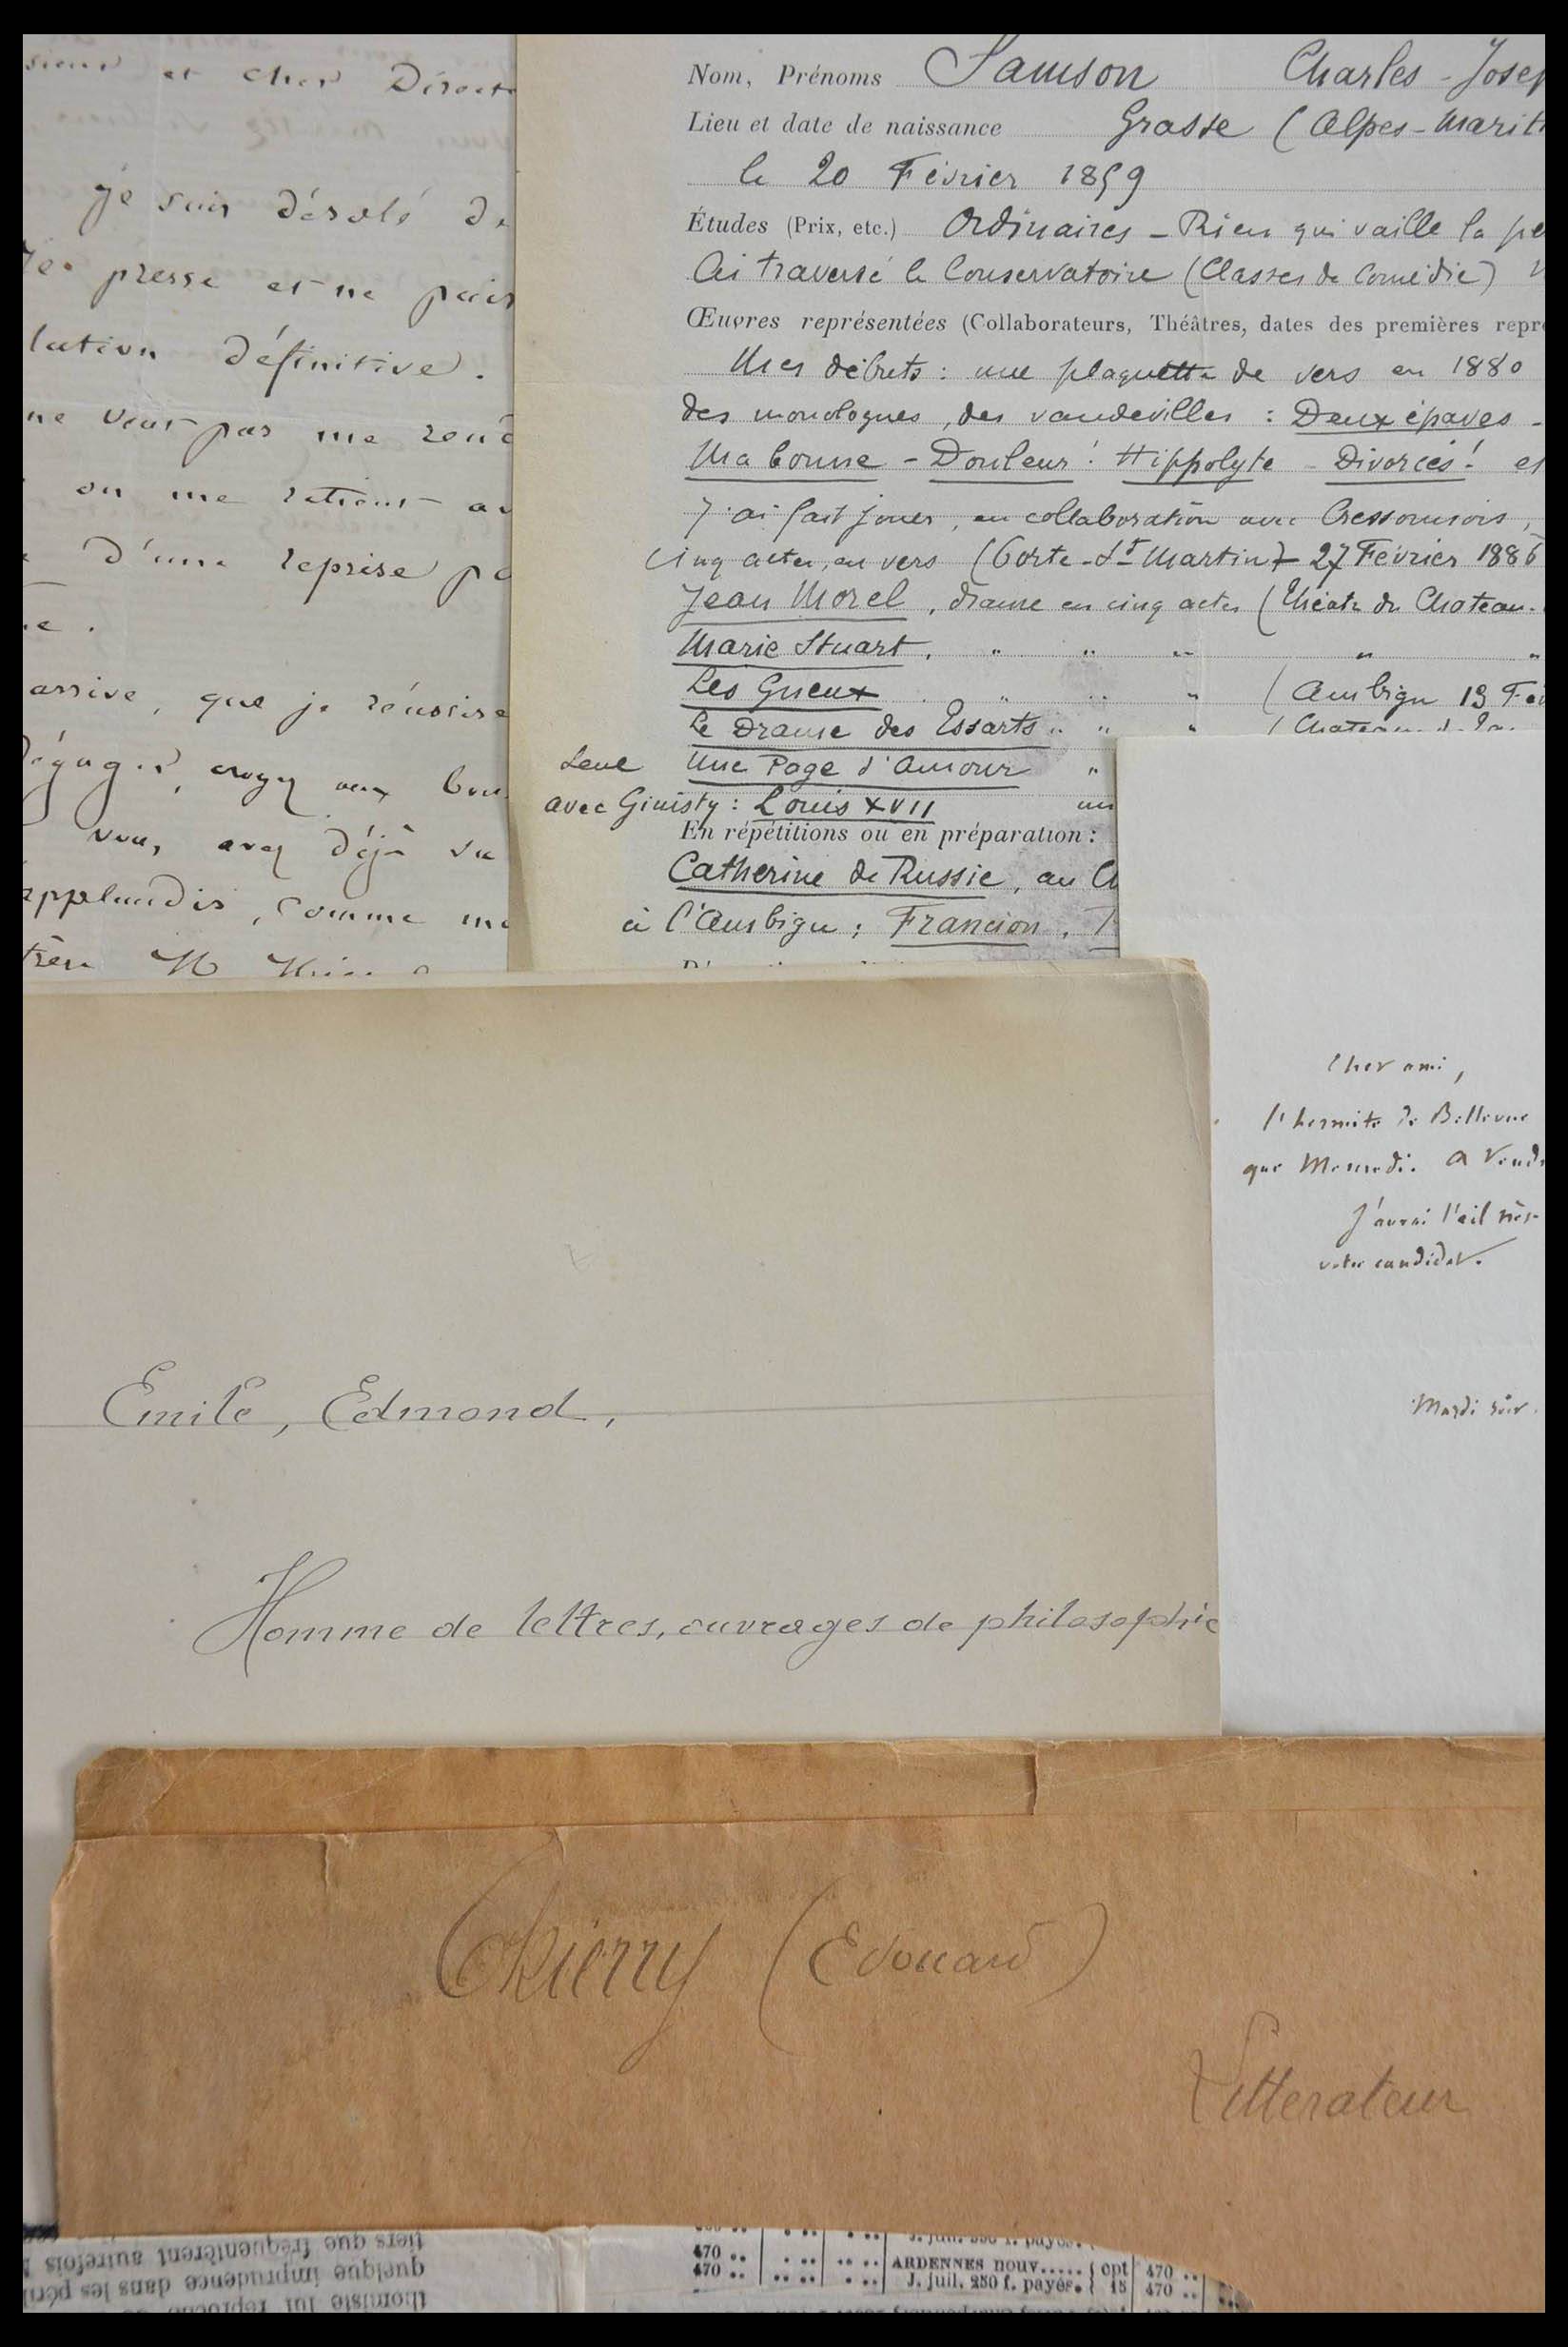 et cher Direct
je suis désolé de
presse et ne puis
lution définitive.
ne veut pas me rend
on me retient av
d'une reprise po
arrive, que je réussisse
dégager, croyez aux bon
vous, avez déjà su
applaudir, comme mo
M
Nom, Prénoms Samson Charles-Josep
Lieu et date de naissance Grasse (Alpes-Marit
le 20 Février 1859
Études (Prix, etc.) Ordinaires - Rien qui vaille la pe
Ai traversé le Conservatoire (Classes de Comédie)
Œuvres représentées (Collaborateurs, Théâtres, dates des premières repr
Mes débuts : une plaquette de vers en 1880
des monologues, des vaudevilles : Deux épaves -
Ma bonne - Douleur ! Hippolyte - Divorcés ! et
J'ai fait jouer, en collaboration avec Cressonnois,
cinq actes, en vers (Porte-St Martin) - 27 Février 1886
Jean Morel, drame en cinq actes (Théatre du Chateau-
Marie Stuart, " " " " "
Les Gueux " " " (Ambigu 19 Fév
Le Drame des Essarts " " " (Chateau d
Seul Une Page d'Amour "
avec Ginisty : Louis XVII un
En répétitions ou en préparation :
Catherine de Russie, au
à l'Ambigu ; Francion,
Cher ami,
l'hermite de Bellevue
que Mercredi. A Vend
J'aurai l'œil très-
votre candidat.
Mardi soir.
Emile, Edmond,
Homme de lettres, ouvrages de philosophie
Thierry (Edouard)
Litterateur
tiers que fréquentèrent autrefois
quelque imprudence dans les péri
thomiste lui reproche
J. juil. 250 f. payés.
470 ARDENNES nouv..... cpt 470
470 J. juil. 250 f. payés. 15 470